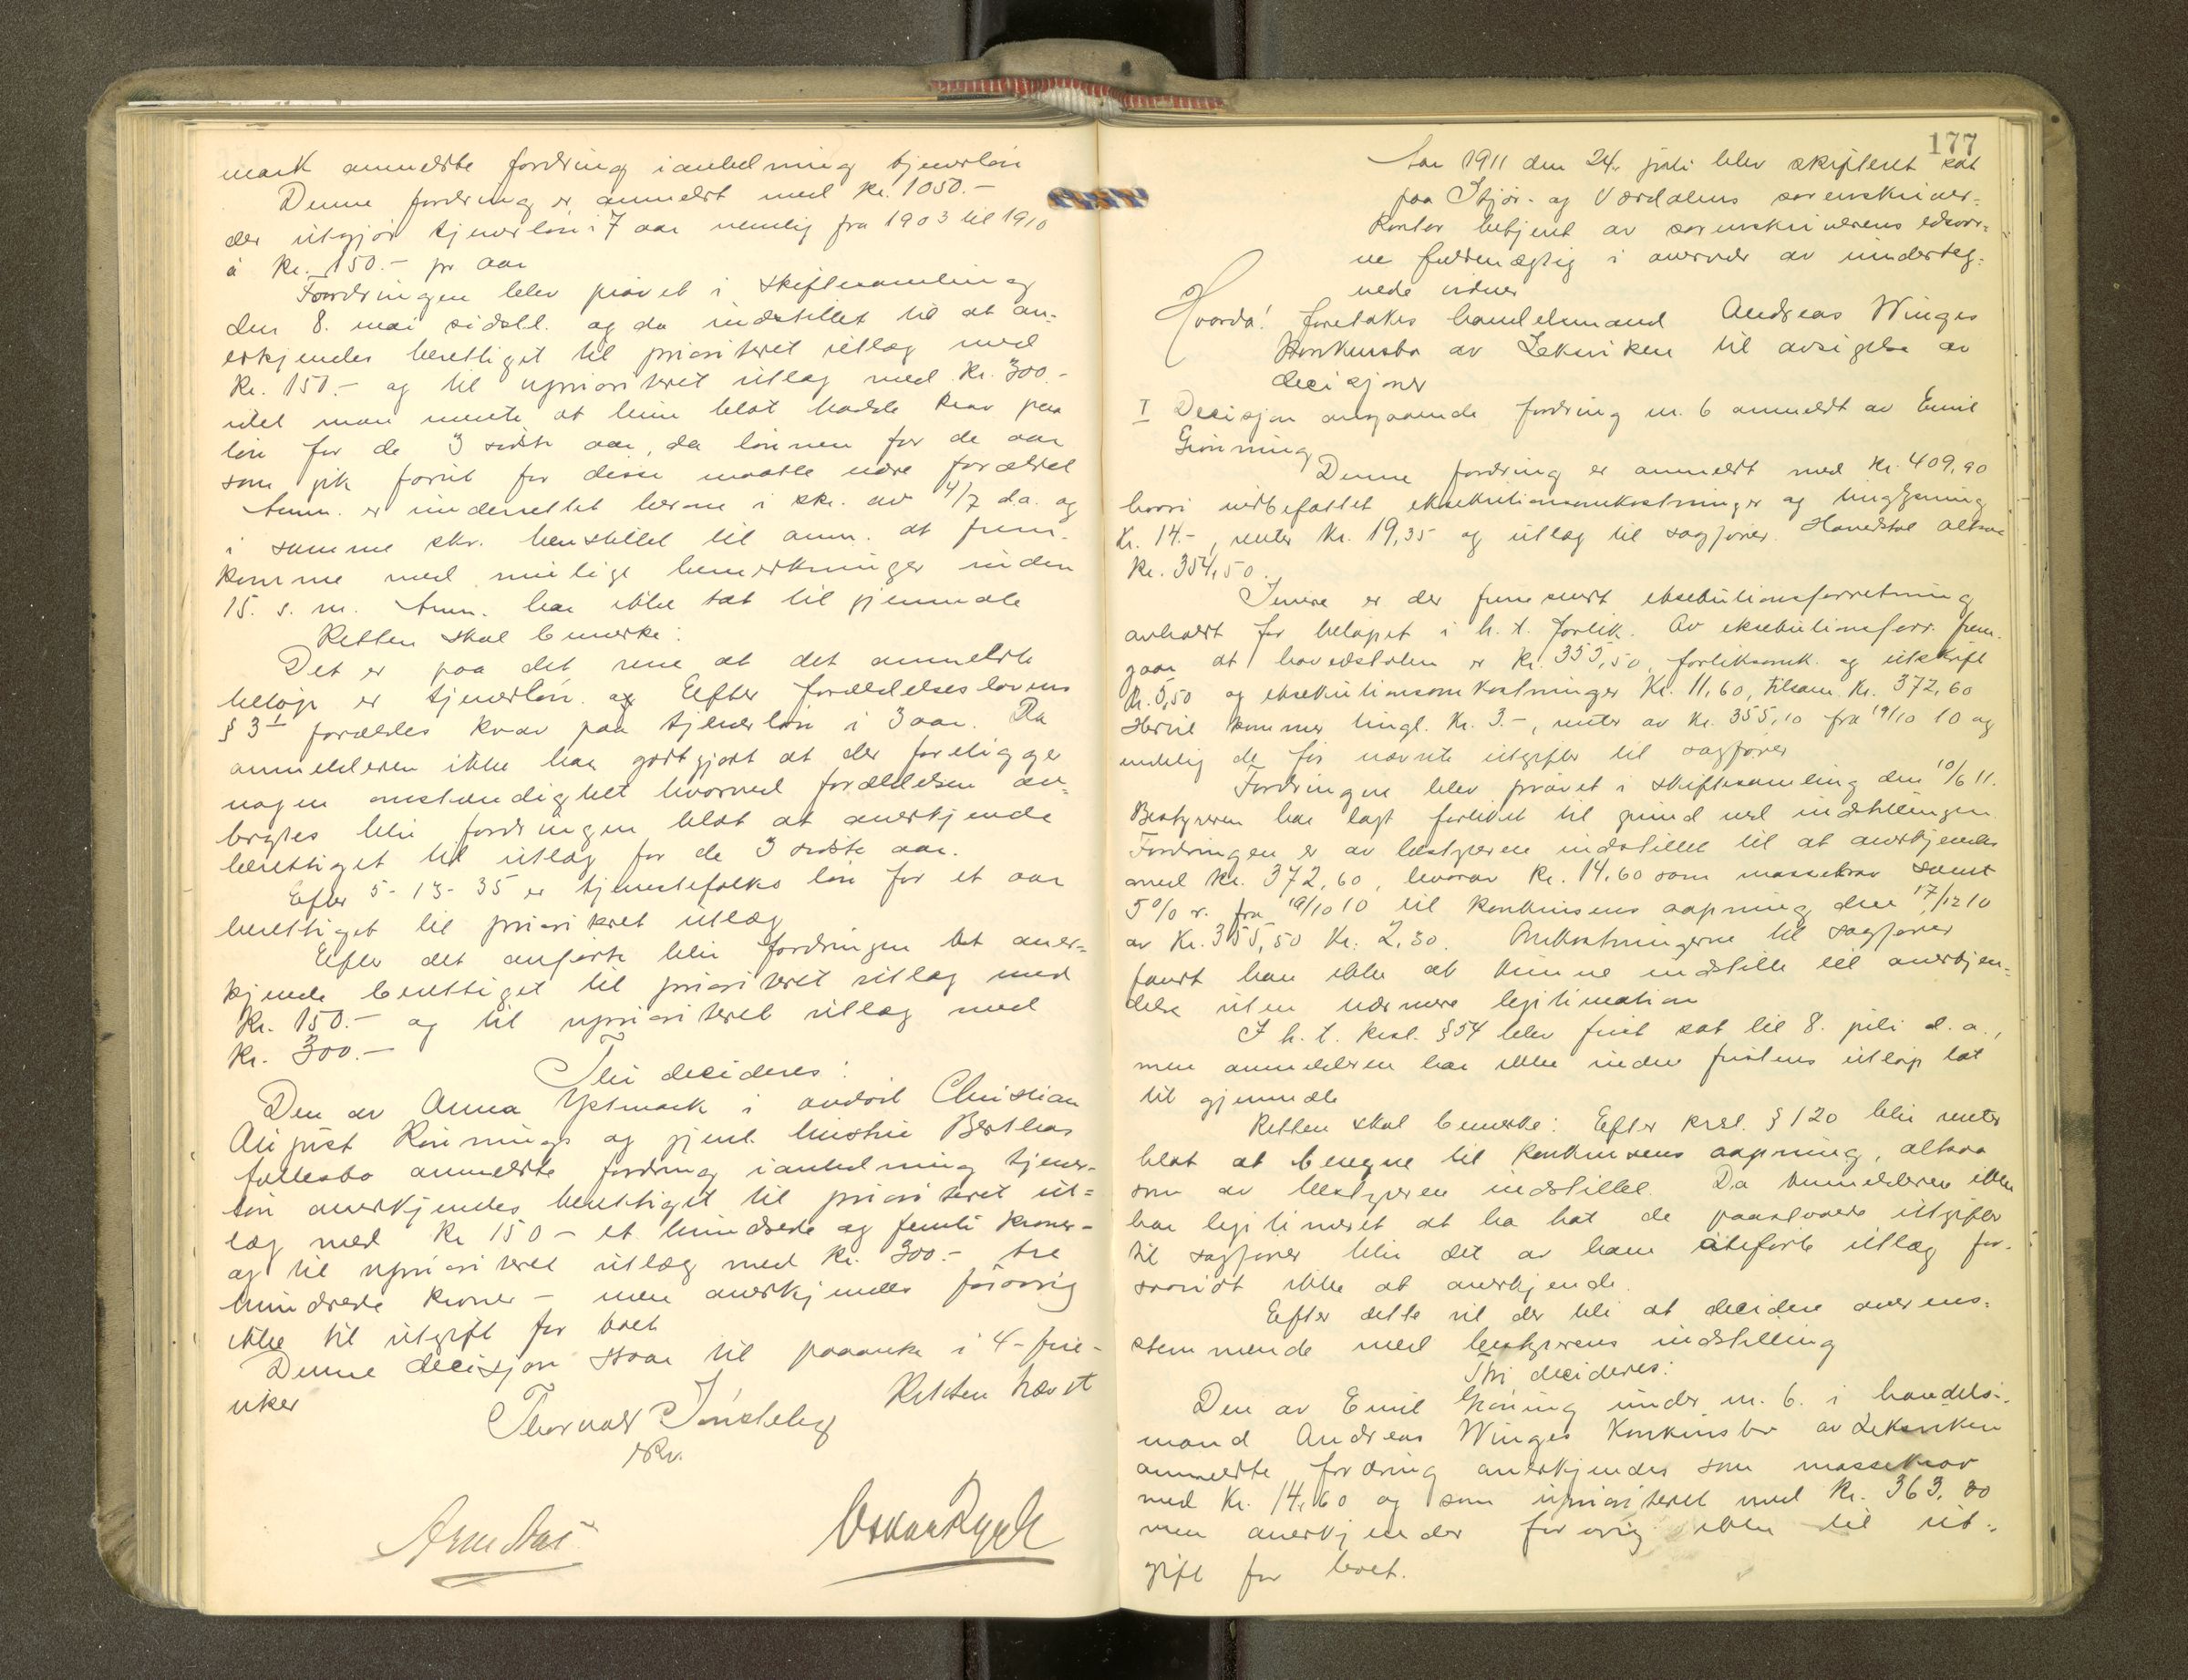 mark anmeldte fordring i anledning tjenerløn
Denne fordring er anmeldt med kr. 1050.-
der utgjør tjenerløn i 7 aar nemlig fra 1903 til 1910
à kr. 150.- pr aar
Fordringen blev prøvet i skiftesamling
den 8. mai sidstl. og da indstillet til at an-
erkjendes berettiget til prioriteret utlæg med
kr. 150.- og til uprioriteret utlæg med kr. 300.-
idet man mente at hun blot hadde krav paa
løn for de 3 sidste aar, da lønnen for de aar
som gik forut for disse maatte være forældet
Anm. er underrettet herom i skr. av 4/7 d.a. og
i samme skr. henstillet til anm. at frem-
komme med mulige bemerkninger inden
15. s. m. Anm. har ikke tat til gjenmæle
Retten skal bemerke:
Det er paa det rene at det anmeldte
beløp er tjenerløn. og Efter forældelseslovens
§ 3 I forældes krav paa tjenerløn i 3 aar. Da
anmelderen ikke har godtgjort at der foreligger
nogen omstændighet hvorved forældelsen av-
brytes blir fordringen blot at anerkjende
berettiget til utlæg for de 3 sidste aar.
Efter 5-13-35 er tjenestefolks løn for et aar
berettiget til prioriteret utlæg
Efter det anførte blir fordringen at aner-
kjende berettiget til prioriteret utlæg med
kr. 150.- og til uprioriteret utlæg med
kr. 300.-
Thi decideres:
Den av Anna Ystmark i avdød Christian
August Rønnings og gjenl. hustru Berthas
fællesbo anmeldte fordring i anledning tjener-
løn anerkjendes berettiget til prioriteret ut-
læg med kr 150 - et hundrede og femti kroner -
og til uprioriteret utlæg med kr. 300.- tre
hundrede kroner - men anerkjendes forøvrig
ikke til utgift for boet
Denne decisjon staar til paaanke i 4 - fire -
uker
Retten hævet
Thorvald
Oskar Rygh

177
Aar 1911 den 24. juli blev skifteret sat
paa Stjør- og Værdalens sorenskriver-
kontor betjent av sorenskriverens edsvor-
ne fuldmægtig i overvær av underteg-
nede vidner
Hvorda! foretokes handelsmand Andreas Winges
konkursbo av Leksviken til avsigelse av
decisjoner
I Decisjon angaaende fordring nr. 6 anmeldt av Emil
Grønning
Denne fordring er anmeldt med kr. 409,90
hvori indbefattet eksekutionsomkostninger og tinglysning
kr. 14.-, renter kr. 19,35 og utlæg til sagfører. Hovedstol altsaa
kr. 354,50.
Senere er der fremsendt eksekutionsforretning
avholdt for beløpet i h. t. forlik. Av eksekutionsforr. frem-
gaar at hovedstolen er kr. 355,50, forliksomk. og utskrift
kr. 5,50 og eksekutionsomkostninger kr. 11,60, tilsam. kr. 372,60
Hertil kommer tingl. kr. 3.-, renter av kr. 355,10 fra 19/10 10 og
endelig de før nævnte utgifter til sagfører
Fordringen blev prøvet i skiftesamling den 10/6 11.
Bestyreren har lagt forliket til grund ved indstillingen
Fordringen er av bestyreren indstillet til at anerkjendes
med kr. 372,60, hvorav kr. 14.60 som massekrav samt
5 % r. fra 19/10 10 til konkursens aapning den 17/12 10
av kr. 355,50 kr. 2,30. Omkostningerne til sagfører
fandt han ikke at kunne indstille til anerkjen-
delse uten nærmere legitimation
I h. t. krsl. § 54 blev frist sat til 8. juli d. a.,
men anmelderen har ikke inden fristens utløp tat
til gjenmæle
Retten skal bemerke: Efter krsl. § 120 blir renter
blot at beregne til konkursens aapning, altsaa
som av bestyreren indstillet. Da anmelderen ikke
har legitimeret at ha hat de paastaaede utgifter
til sagfører blir det av ham anførte utlæg for-
saavidt ikke at anerkjende.
Efter dette vil der bli at decidere overens-
stemmende med bestyrerens indstilling
Thi decideres:
Den av Emil Grøning under nr. 6. i handels-
mand Andreas Winges konkursbo av Leksviken
anmeldte fordring anerkjendes som massekrav
med kr. 14,60 og som uprioriteret med kr. 363,
men anerkjendes forøvrig ikke til ut-
gift for boet.